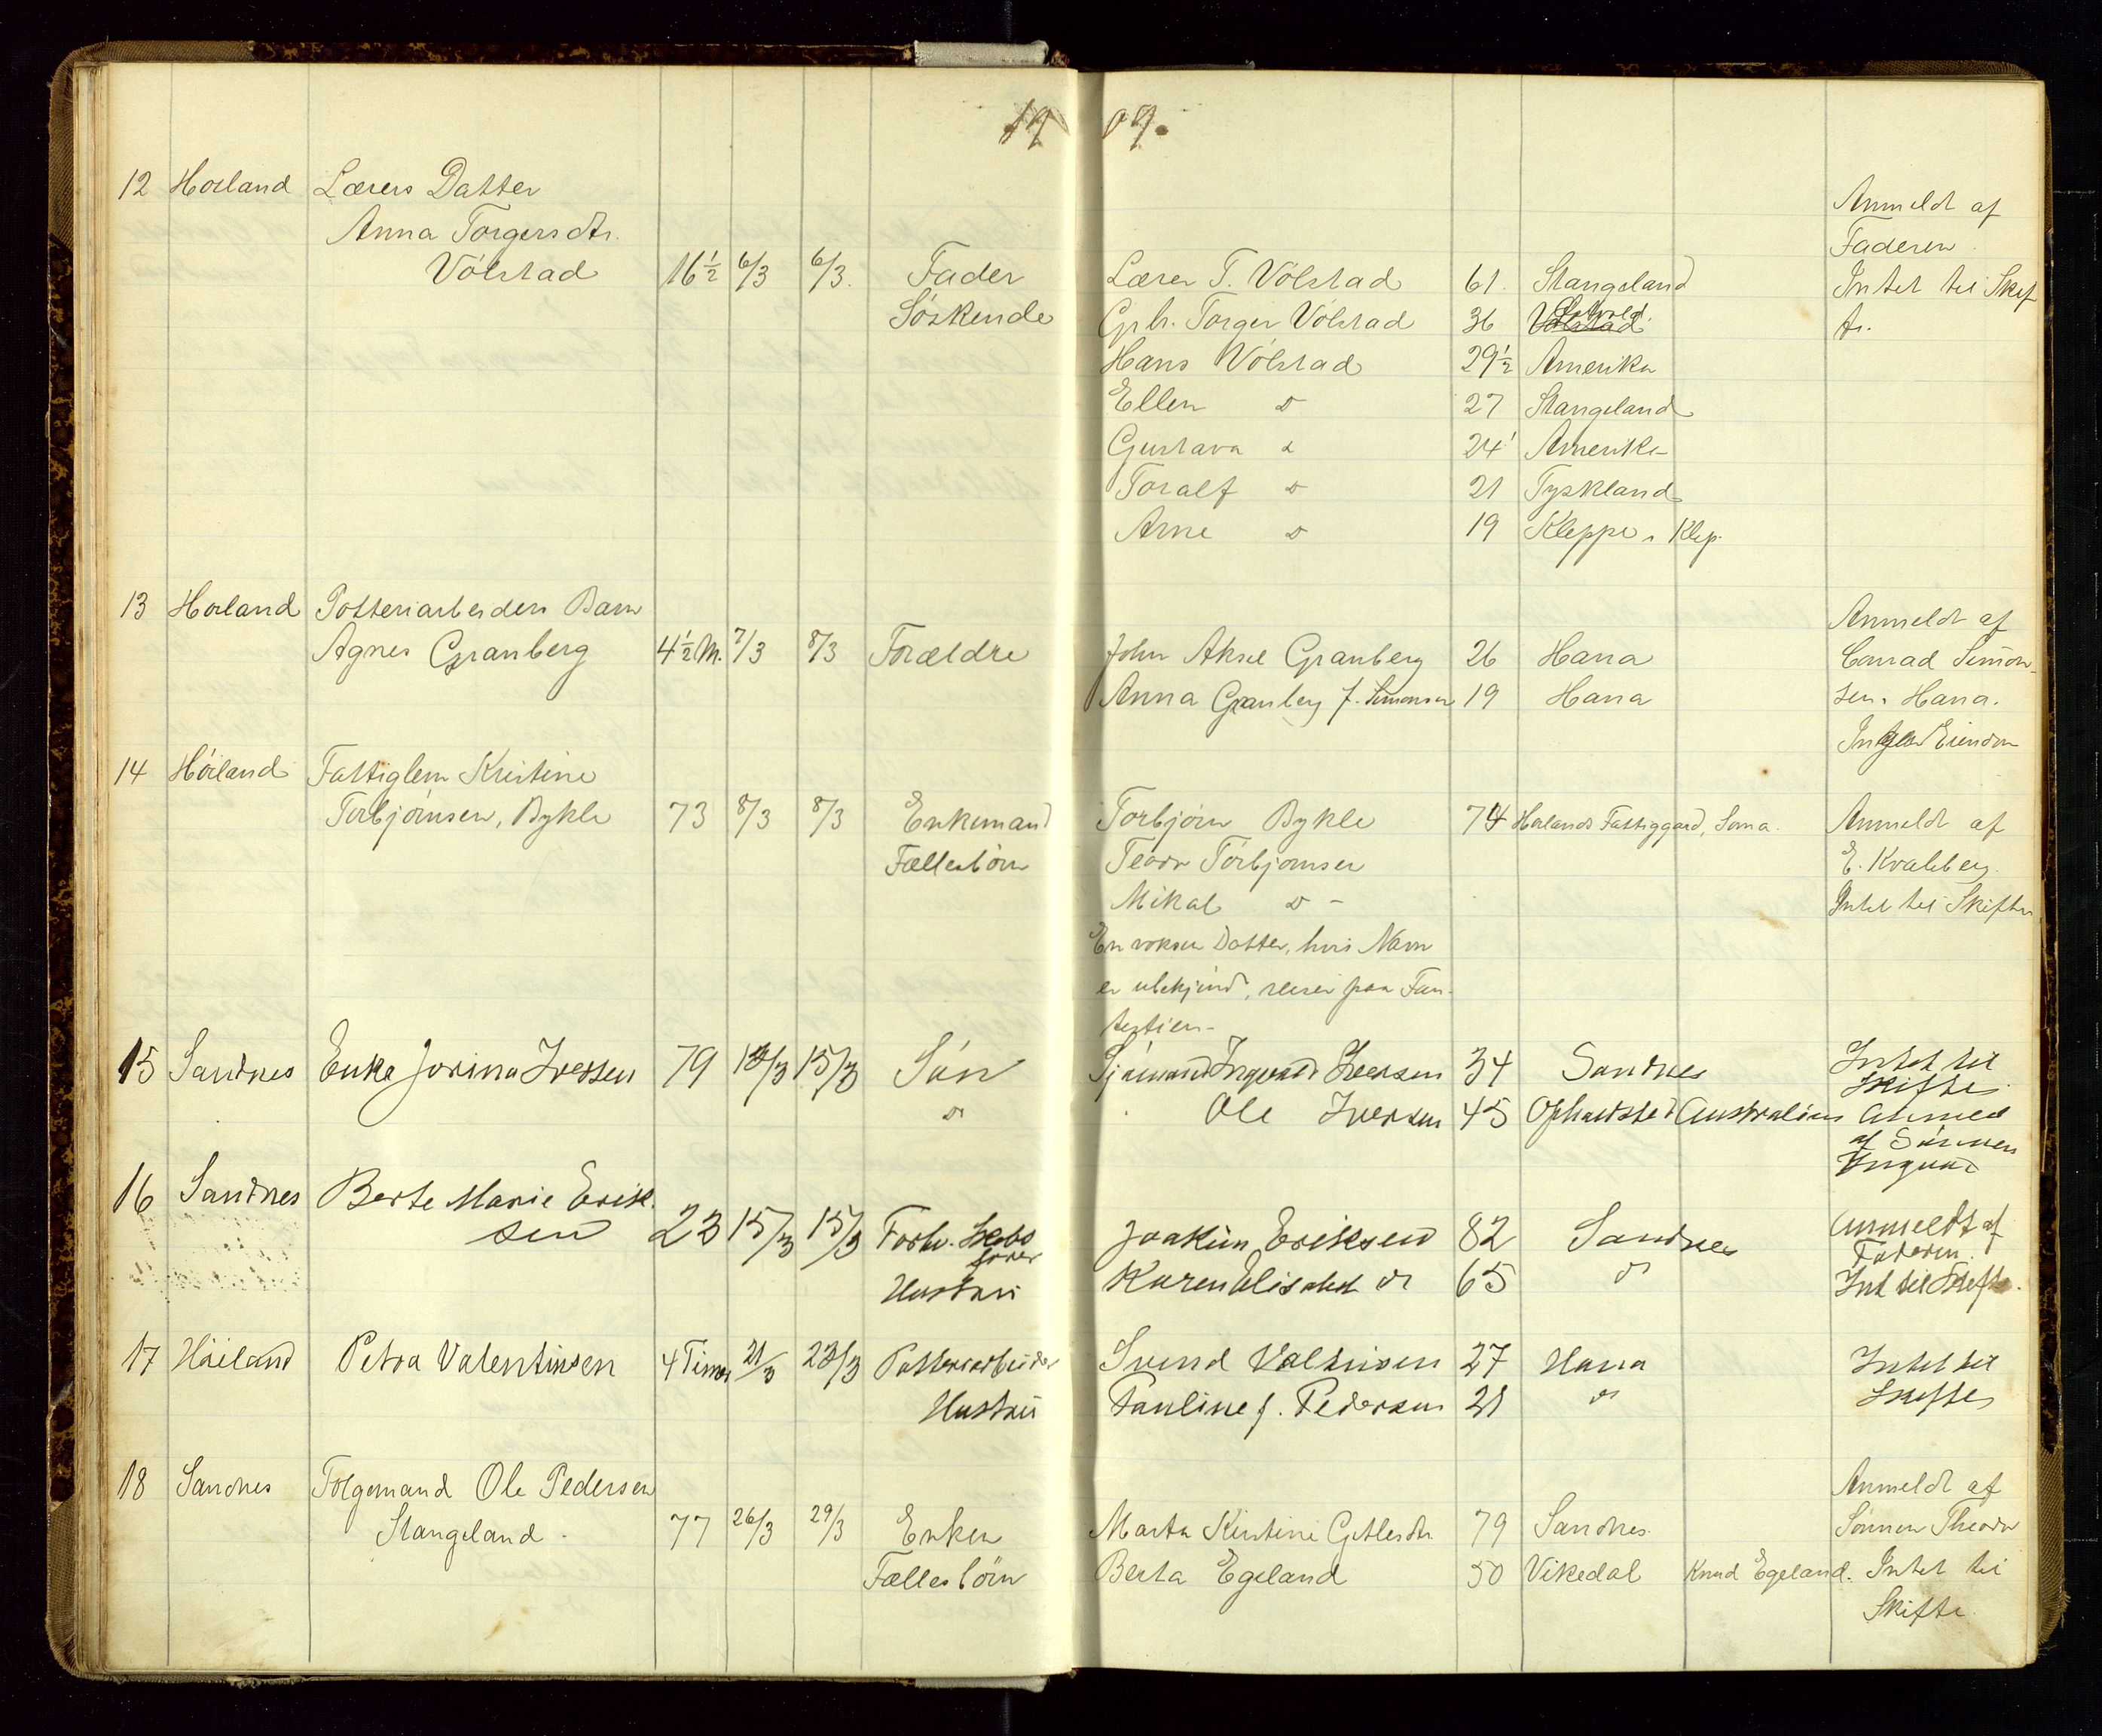 1909.
12 Høiland Lærers Datter
Anmeldt af
Anna Torgersdtr.
Faderen.
Vølstad 16½ 6/3 6/3. Fader Lærer T. Vølstad 61. Stangeland Intet til Skif
Søskende Grbr. Torger Vølstad 36 Vølstad te.
Hans Vølstad 29½ Amerika
Ellen do 27 Stangeland
Gustava do 24 Amerika
Toralf do 21 Tyskland
Arne do 19 Kleppe, Klep.
13 Høiland Potteriarbeiders Barn
Anmeldt af
Agnes Granberg 4½ M. 7/3 8/3 Forældre John Aksel Granberg 26 Hana Conrad Simon-
Anna Granberg f. Simonsen 19 Hana sen, Hana.
Eiendom
14 Høiland Fattiglem Kristine
Torbjørnsen, Bykle 73 8/3 8/3 Enkemand Torbjørn Bykle 74 Høilands Fattiggaard, Soma. Anmeldt af
Fællesbørn Teodor Torbjørnsen E. Kvalsberg.
Mikal do - Intet til Skifte
En voksen Datter, hvis Navn
er ubekjendt, reiser paa Fan-
testien.
15 Sandnes Enke Jorina Iversen 79 15/3 Søn Sjømand Ingvald Iversen 34 Sandnes Intet til
Skifte
do Ole Iversen 45 Opholdsted Australien Anmeld
af Sønnen
Ingvald
16 Sandnes Berte Marie Erik-
sen 23 15/3 15/3 Forhv. Skibs Joakim Eriksen 82 Sandnes Anmeldt af
fører Faderen.
Hustru Karen Elisabet do 65 do Int til Skifte.
17 Høiland Petra Valentinsen 4 Timer 21/3 23/3 Potteriarbeider Svend Valtinsen 27 Hana Intet til
Hustru Pauline f. Pedersen 21 do Skifte
18 Sandnes Følgemand Ole Pedersen
Anmeldt af
Stangeland. 77 26/3 29/3 Enken Marta Kirstine Gitlesdtr. 79 Sandnes. Sønnen Theodor
Fællesbørn Berta Egeland 50 Vikedal Knud Egeland. Intet til
Skifte.